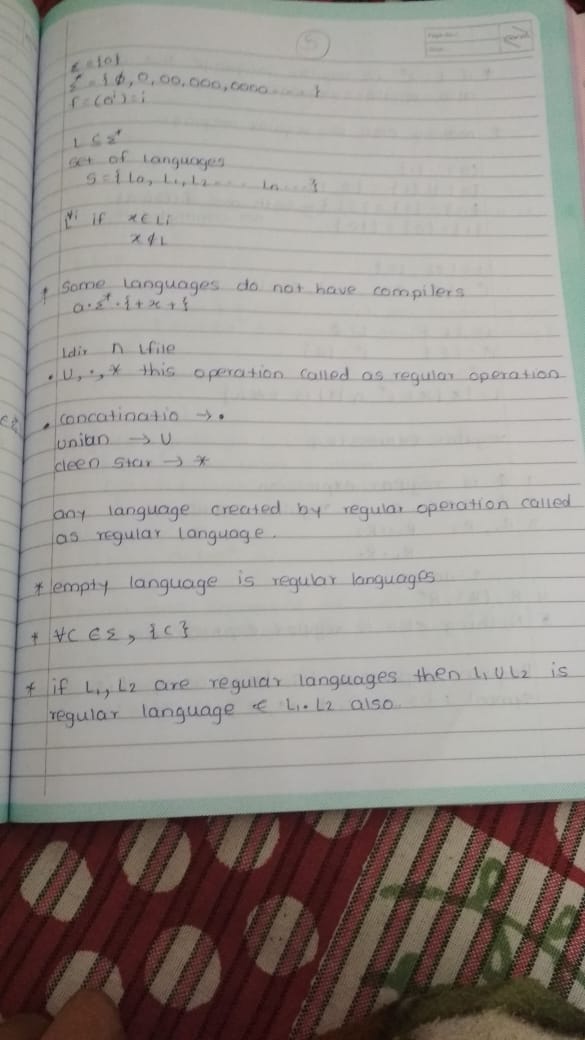 5
Σ = {0}
Σ* = { ϕ, 0, 00, 000, 0000 ..... }
f = (0i) = i
L ⊆ Σ*
set of languages
S = { L0, L1, L2 ..... Ln .... }
∀i if x ∈ Li
x ∉ L
* Some languages do not have compilers
a · Σ* · { + x + }
Ldir ∩ Lfile
• U, ·, * this operation called as regular operation
• concatinatio → •
union → U
cleen star → *
any language created by regular operation called
as regular language.
* empty language is regular languages
* ∀C ∈ Σ, {C}
* if L1, L2 are regular languages then L1 U L2 is
regular language & L1 • L2 also.